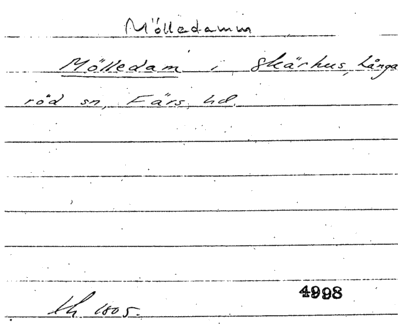 Mölledamm
Mölledam i Skärhus, Långa
röd sn, Färs hd.
4998
Lh 1805.